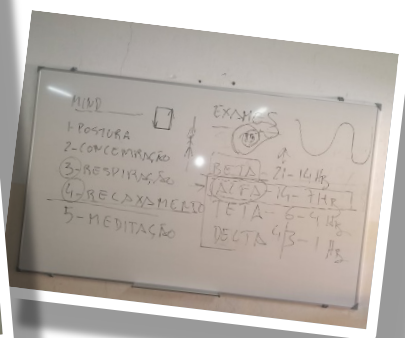 1-POSTURA
2-CONCENTRAÇÃO
3-RESPIRAÇÃO
4-RELAXAMENTO
5-MEDITAÇÃO
EXAMES
BETA-21-14Hz
ALFA-14-7Hz
TETA-6-4Hz
DECTA 4/3-1Hz